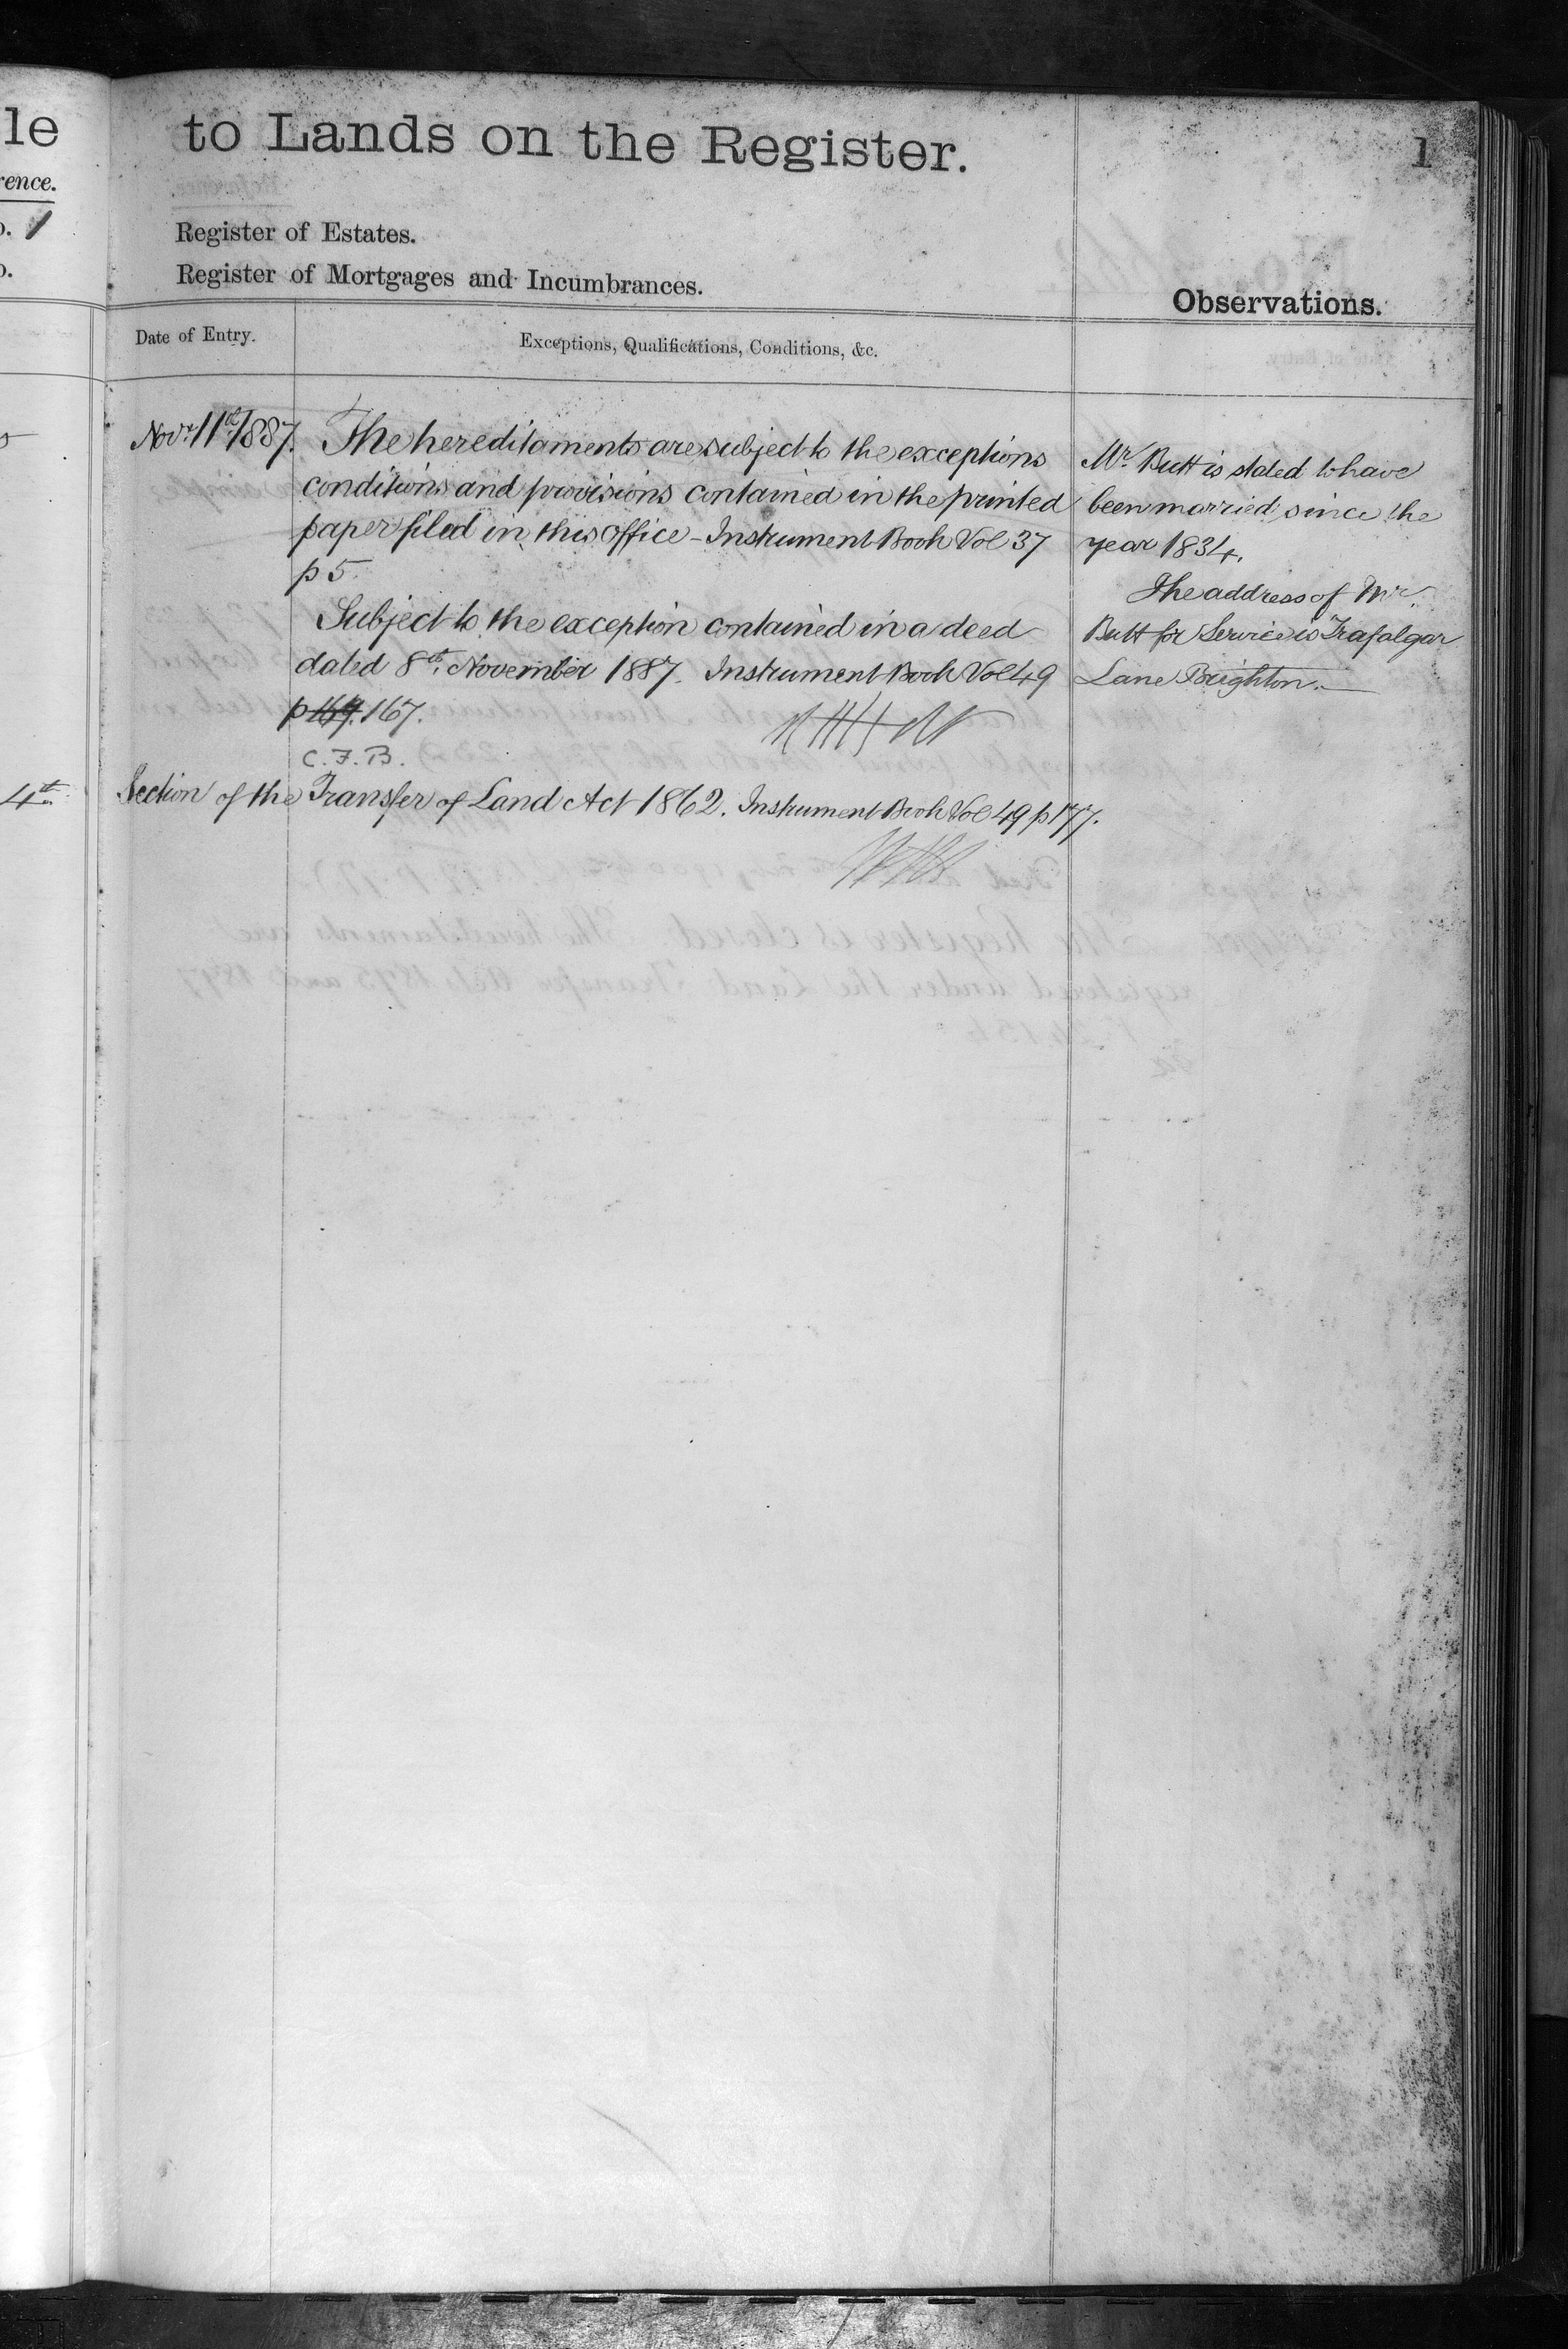 le
to Lands on the Register.
1
rence.
Register of Estates.
Register of Mortgages and Incumbrances.
Observations.
Date of Entry.
Exceptions, Qualifications, Conditions, &c.
Novr 11th 1887.
The hereditaments are subject to the exceptions
conditions and provisions contained in the printed
paper filed in this office - Instrument Book Vol 37
p 5.
Subject to the exception contained in a deed
dated 8th November 1887. Instrument Book Vol 49
p 169. 167.
C.F.B.
4th
Section of the Transfer of Land Act 1862. Instrument Book Vol 49 p 177.
Mr. Butt is stated to have
been married since the
year 1834.
The address of Mr.
Butt for Service is Trafalgar
Lane Brighton.